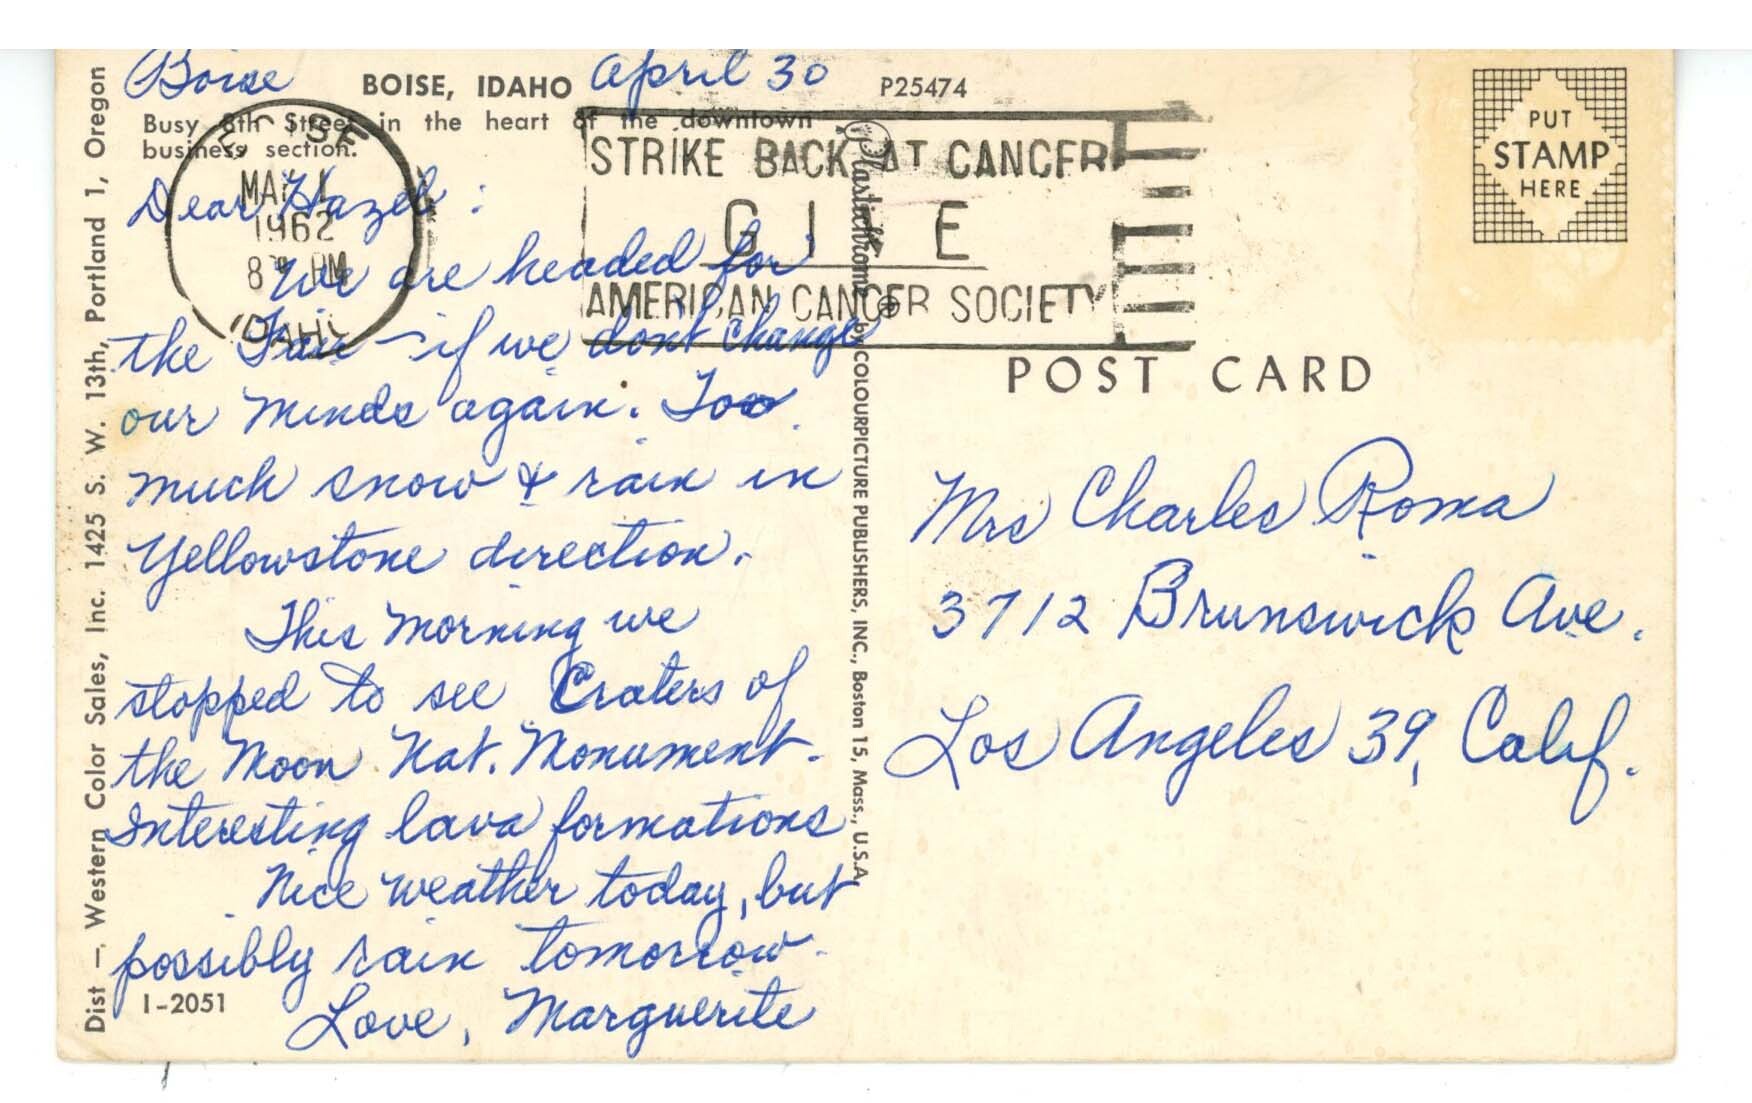 Boise BOISE, IDAHO April 30 P25474
Busy 8th Street in the heart of the downtown
business section.
Dear Hazel:
We are headed for
the Fair - if we don't change
our minds again. Too
much snow & rain in
Yellowstone direction.
This morning we
stopped to see Craters of
the Moon Nat. Monument.
Interesting lava formations
Nice weather today, but
possibly rain tomorrow.
Love, Marguerite
I-2051
Dist —. Western Color Sales, Inc. 1425 S. W. 13th, Portland 1, Oregon
BOISE
MAY 1
1962
8 PM
IDAHO
STRIKE BACK AT CANCER
GIVE
AMERICAN CANCER SOCIETY
Plastichrome ® by COLOURPICTURE PUBLISHERS, INC., Boston 15, Mass., U.S.A.
PUT
STAMP
HERE
POST CARD
Mrs Charles Roma
3712 Brunswick Ave.
Los Angeles 39, Calif.